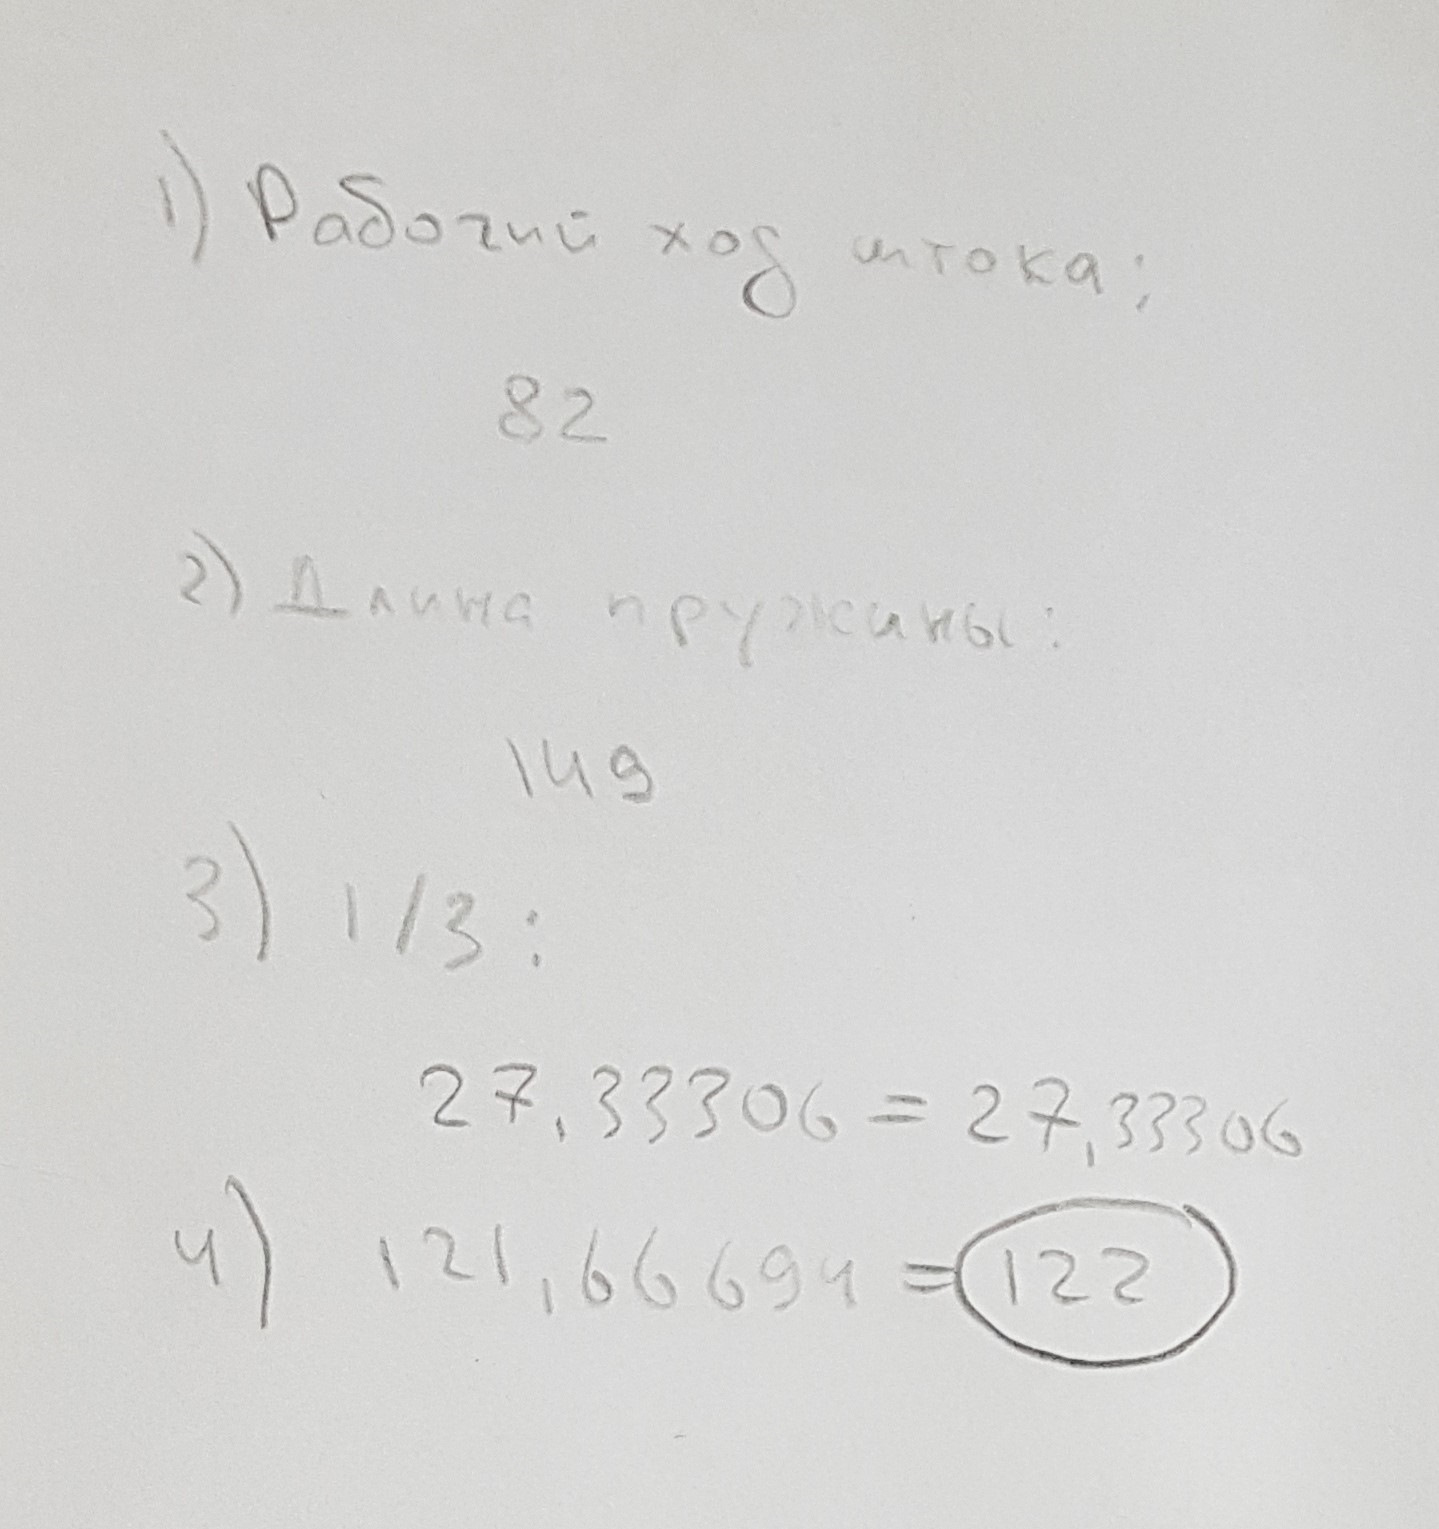 1) Рабочий ход штока:
82
2) Длина пружины:
149
3) 1/3:
27,33306 = 27,33306
4) 121,66694 = 122